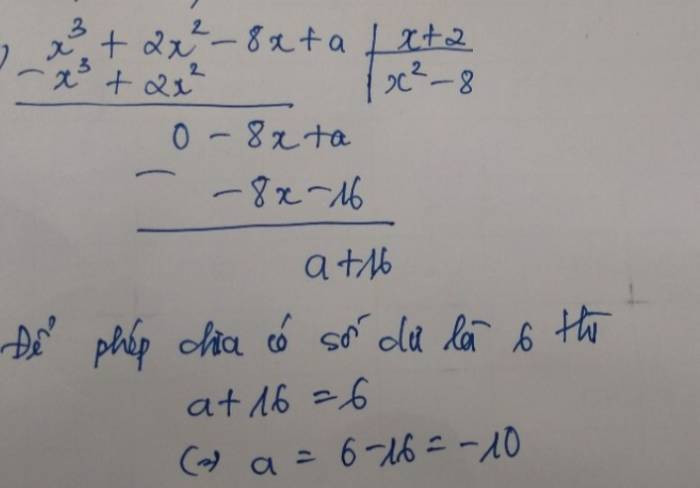 ) x³ + 2x² - 8x + a | x + 2
- x³ + 2x² | x² - 8
0 - 8x + a
- - 8x - 16
a + 16
Để phép chia có số dư là 6 thì
a + 16 = 6
(=) a = 6 - 16 = -10